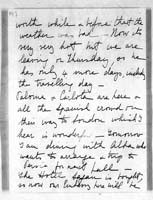 worth while & before that the
weather was bad — Now its
very very hot but we are
leaving on Thursday, so he
has only 4 more days, including
the travelling day —
Paloma & Carlota are here &
all the Spanish crowd on
their way to London which I
hear is wonderful — Tomorrow
I am dining with Alba who
wants to arrange a trip to
for next
The Hotel is bright,
as now our will be